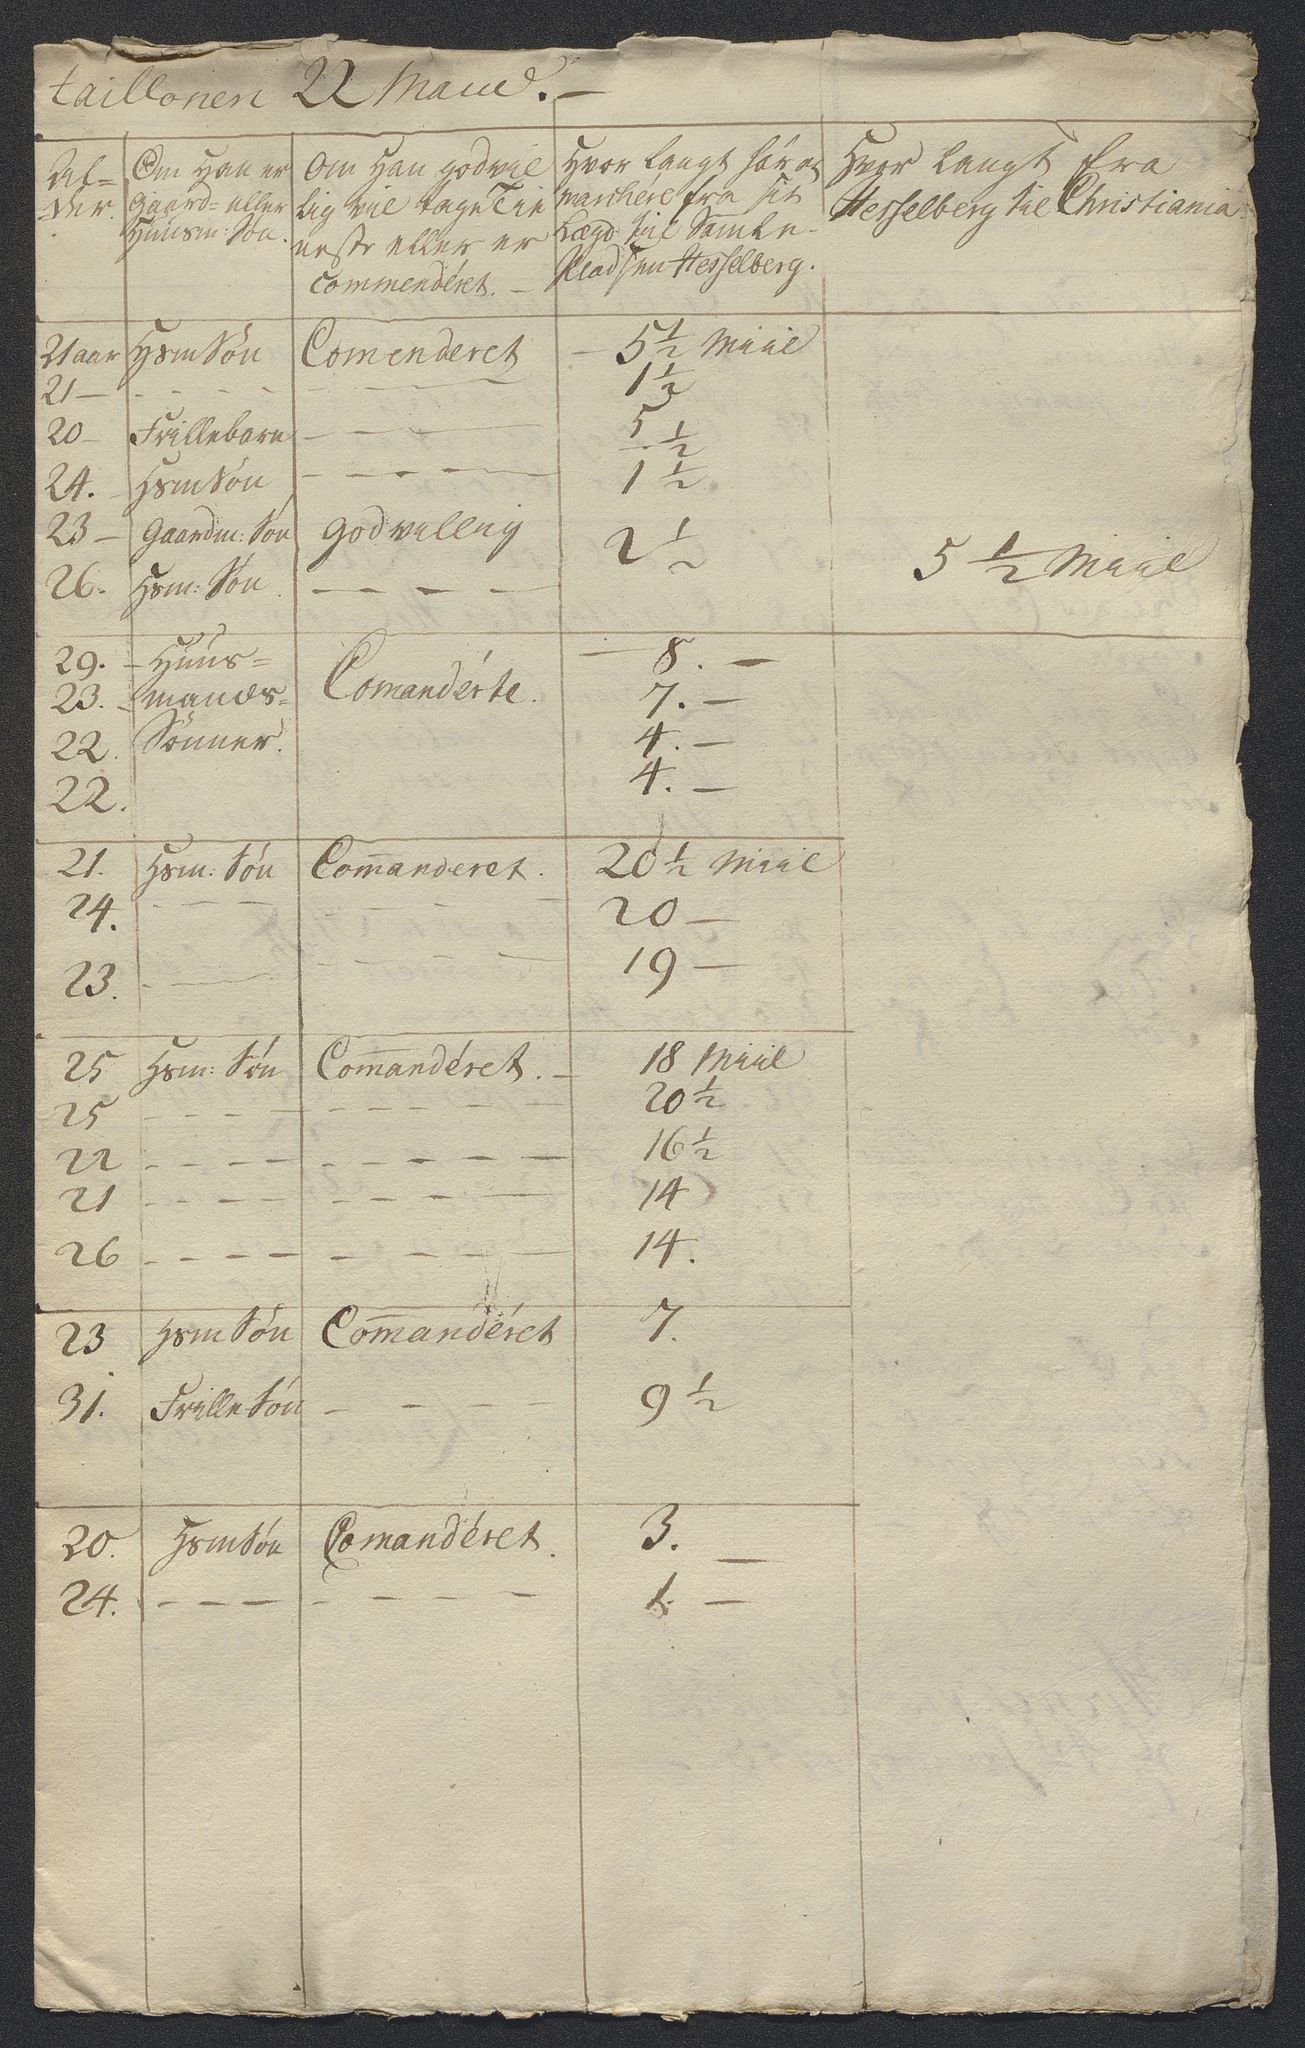 taillonen 22 Mand. –
Al=
der.
Om Han er
Gaard= eller
Huusm: Søn.
Om Han godvil
lig vil tage Tie
neste eller er
commendéret. –
Hvor langt har at
marchere fra sit
Lægd til Samle-
Pladsen Hesselberg.
Hvor langt fra
Hesselberg til Christiania
21 aar Hsm Søn Comenderet – 5 1/2 Miil
21 – - - - - - - - 1 1/2
20 – Frillebarn - - - - 5 1/2
24. – Hsm Søn - - - - 1 1/2
23 – Gaardm: Søn godvillig 2 1/2
26. Hsm: Søn - - - -
5 1/2 Miil
29. – Huus= – 8. –
23. – mands= Comandérte. 7. –
22. Sønner. 4. –
22. 4. –
21. Hsm: Søn Com̅anderet. 20 1/2 Miil
24. - - - - - - - - 20 –
23. - - - - - - 19 –
25 Hsm: Søn Com̅andéret. – 18 Miil
25 - - - - - - - - - 20 1/2
22 - - - - - - - - - 16 1/2
21 - - - - - - - - - 14
26 - - - - - - - - - 14.
23 Hsm Søn Com̅andéret 7.
31. Frille Søn - - - - 9 1/2
20. Hsm Søn Comandéret. 3. –
24. - - - - - - - - - 1. –